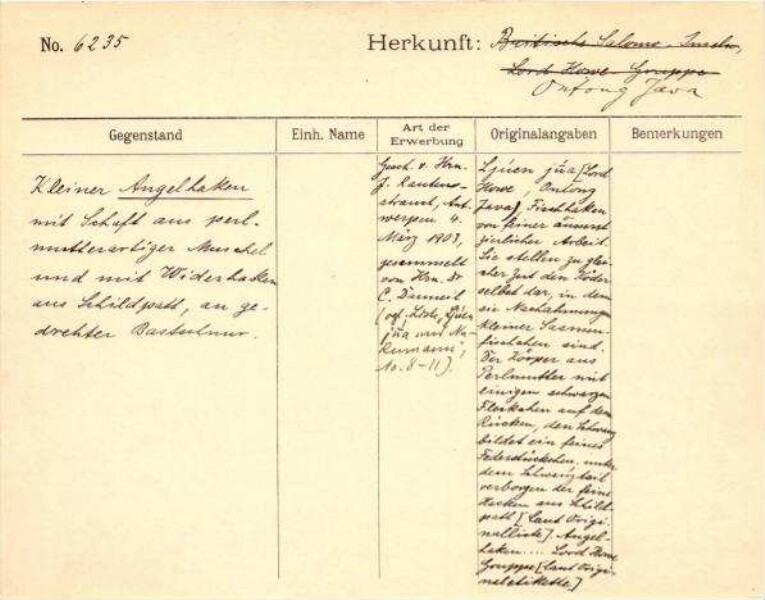 No. 6235
Herkunft: Britische Salomo-Inseln,
Lord Howe-Gruppe
Ontong Java
Gegenstand
Einh. Name
Art der
Erwerbung
Originalangaben
Bemerkungen
Kleiner Angelhaken
mit Schaft aus perl-
mutterartiger Muschel
und mit Widerhaken
aus Schildpatt, an ge-
drehter Bastschnur.
Gesch. v. Hrn.
J. Rauten-
strauch, Ant-
werpen 4.
März 1903,
gesammelt
von Hrn. Dr
C. Danneil
(vgl. Liste, Ljuen
jua und Nu-
kumanu,
No. 8-11).
Ljúen júa [Lord
Howe, Ontong
Java], Fischhaken
von feiner äusserst
zierlicher Arbeit.
Sie stellen zu glei-
cher Zeit den Köder
selbst dar, in dem
sie Nachahmungen
kleiner
fischchen sind.
Der Körper aus
Perlmutter mit
einigen schwarzen
Fleckchen auf dem
Rücken, den Schwanz
bildet ein feines
Federstückchen, unter
dem Schwanzteil
verborgen der feine
Hacken aus Schild-
patt [laut Origi-
nalliste]. Angel-
haken.... Lord Howe
Gruppe [laut Origi-
naletikette.]